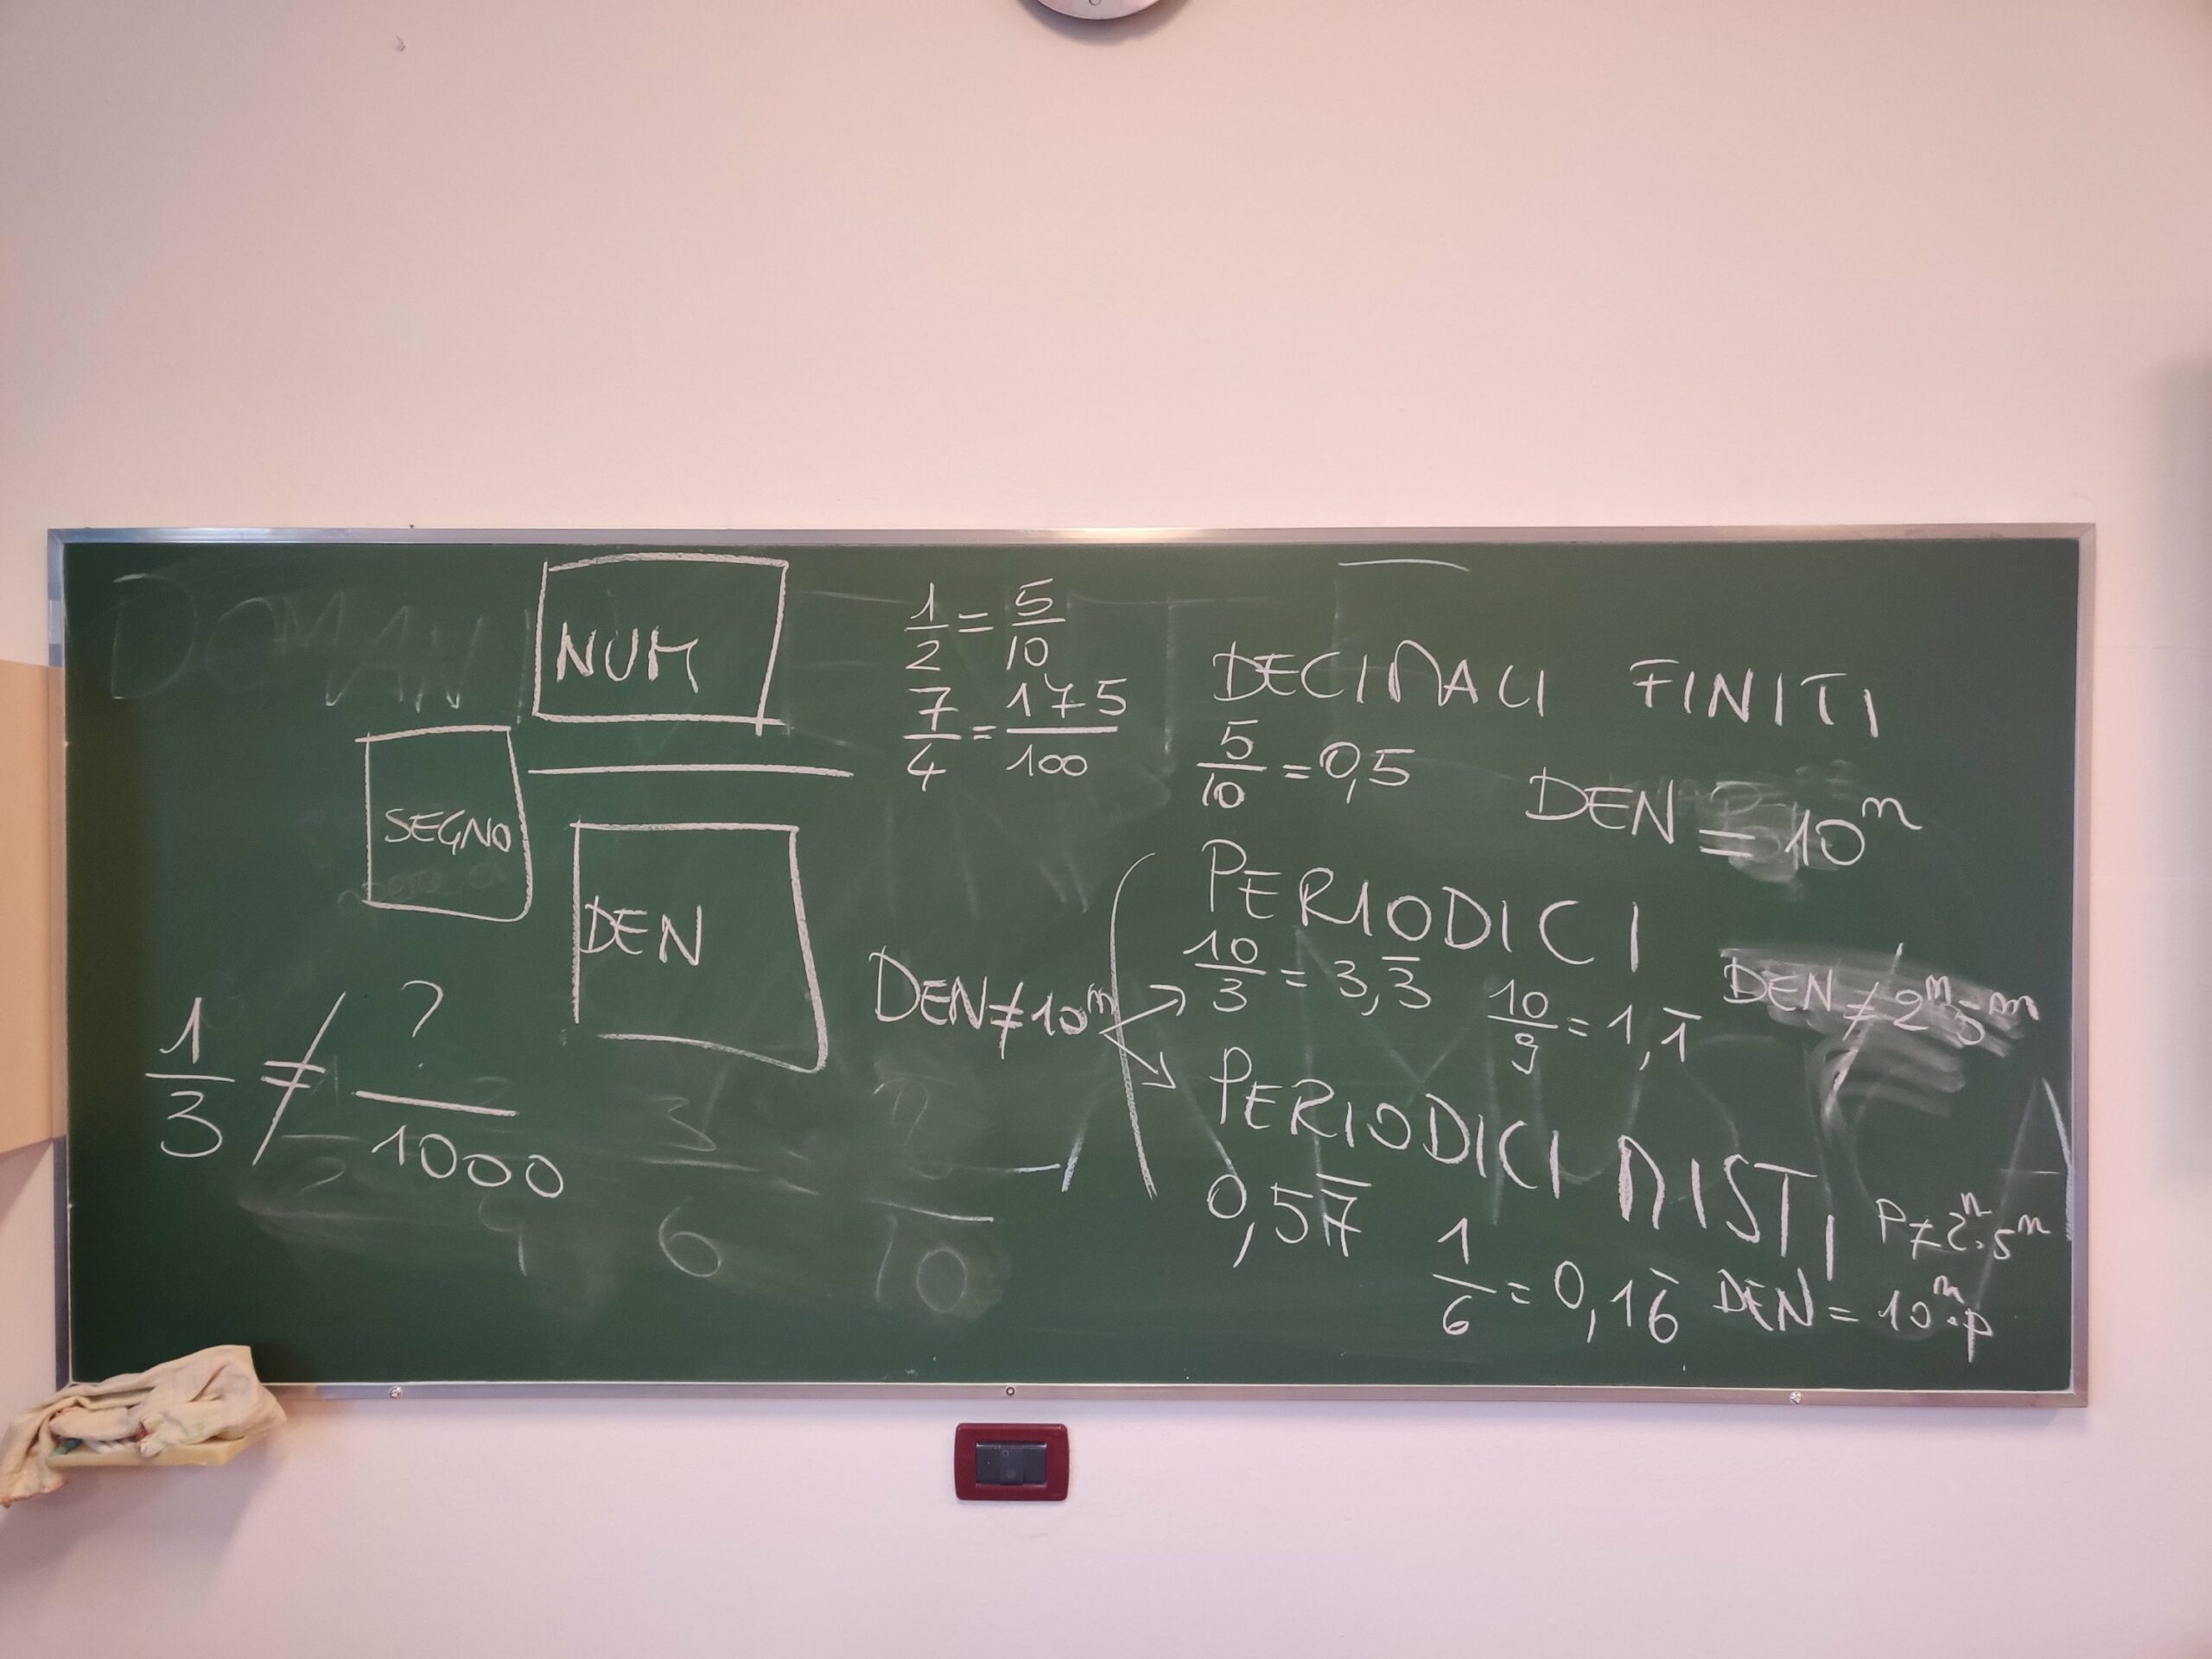 NUM
SEGNO
DEN
1/3 ≠ ?/1000
1/2 = 5/10
7/4 = 175/100
DEN ≠ 10ᵐ
DECIMALI FINITI
5/10 = 0,5
DEN = 10ⁿ
PERIODICI
10/3 = 3,3̅
10/9 = 1,1̅
DEN ≠ 2ⁿ5ᵐ
PERIODICI MISTI
0,57̅
1/6 = 0,16̅
P ≠ 2ⁿ·5ᵐ
DEN = 10ⁿ·P